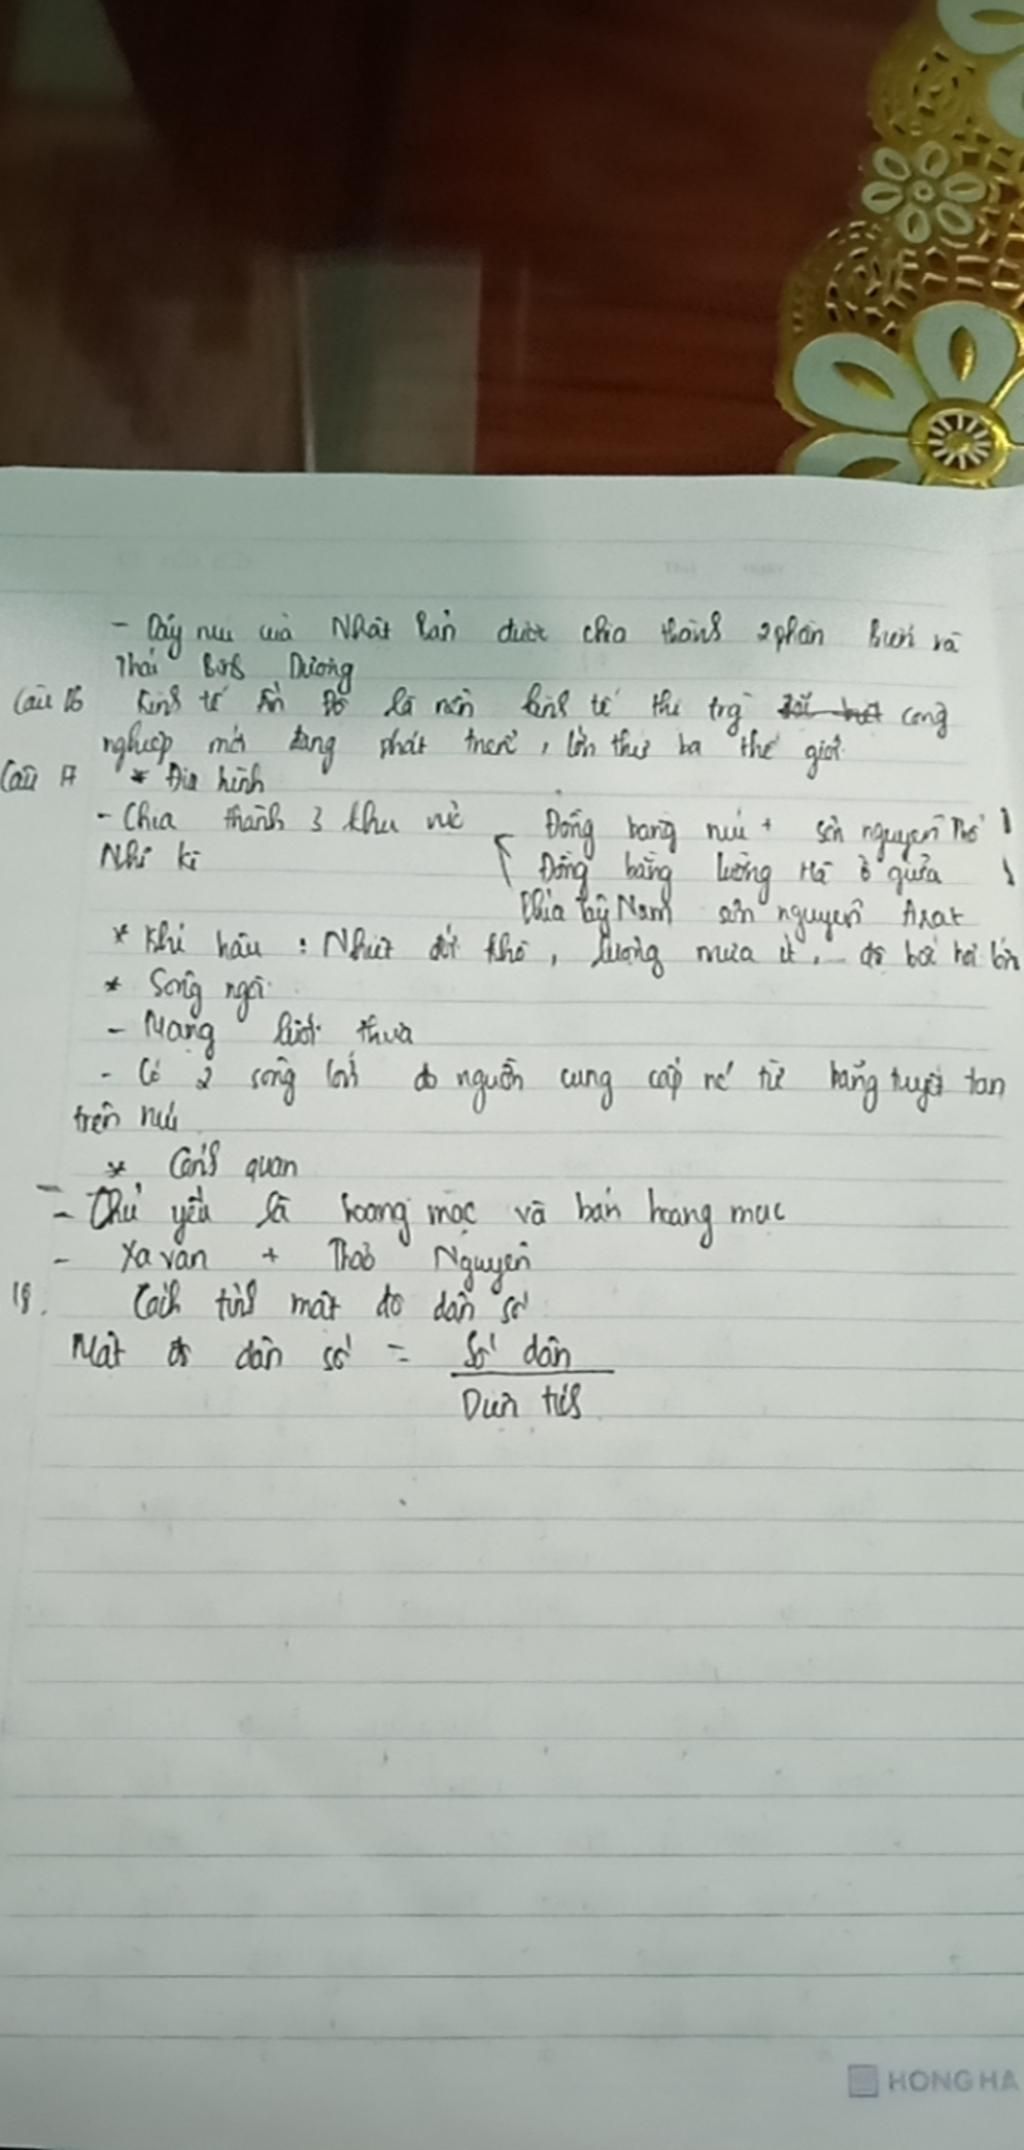 - Dãy núi của Nhật Bản được chia thành 2 phần Bươi và
Thái Bình Dương
Câu 16 Kinh tế Ấn Độ là nền kinh tế thị trg công
nghiệp mới đang phát triển, lớn thứ ba thế giới.
Câu 17 * Địa hình
- Chia thành 3 khu vực Đồng bằng núi + sơn nguyên Thổ
Nhĩ kì Đồng bằng lưỡng Hà ở giữa
Phía tây Nam sơn nguyên Arat
* Khí hậu : Nhiệt đới khô, lượng mưa ít, độ bốc hơi lớn
* Sông ngòi
- Mạng lưới thưa
- Có 2 sông lớn do nguồn cung cấp nc từ băng tuyết tan
trên núi
* Cảnh quan
- Chủ yếu là hoang mạc và bán hoang mạc
- Xa van + Thảo Nguyên
18. Cách tính mật độ dân số
Mật độ dân số = Số dân
Diện tích
HONG HA